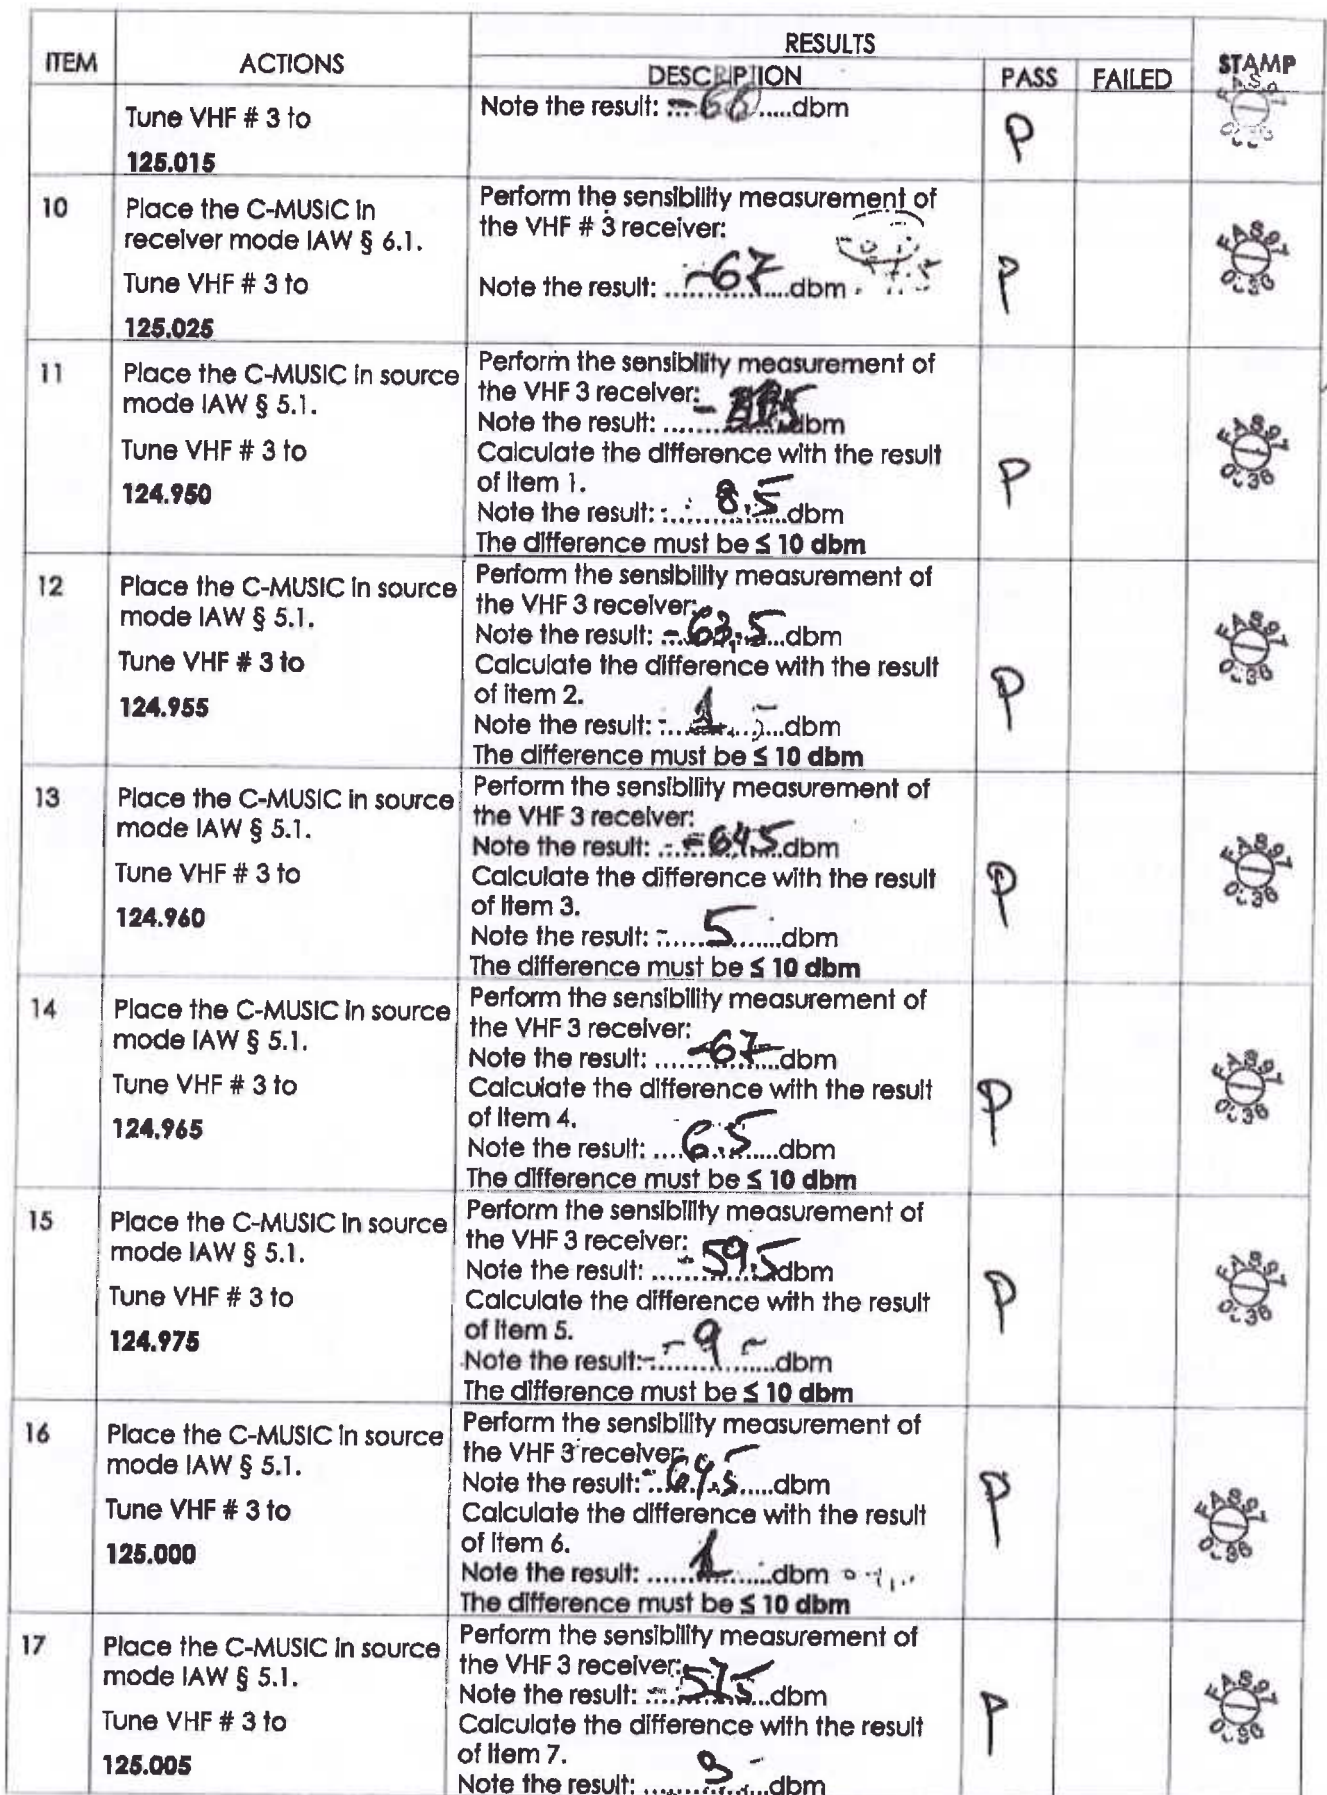 RESULTS
ITEM ACTIONS DESCRIPTION PASS FAILED STAMP
Tune VHF # 3 to
125.015
Note the result: -66.....dbm
P
10
Place the C-MUSIC in
receiver mode IAW § 6.1.
Tune VHF # 3 to
125.025
Perform the sensibility measurement of
the VHF # 3 receiver:
Note the result: ....-67....dbm
P
FAS97
11
Place the C-MUSIC in source
mode IAW § 5.1.
Tune VHF # 3 to
124.950
Perform the sensibility measurement of
the VHF 3 receiver:
Note the result: ........dbm
Calculate the difference with the result
of Item 1.
Note the result: ....8.5....dbm
The difference must be ≤ 10 dbm
P
FAS97
12
Place the C-MUSIC in source
mode IAW § 5.1.
Tune VHF # 3 to
124.955
Perform the sensibility measurement of
the VHF 3 receiver:
Note the result: -63,5...dbm
Calculate the difference with the result
of item 2.
Note the result: ........dbm
The difference must be ≤ 10 dbm
P
FAS97
13
Place the C-MUSIC in source
mode IAW § 5.1.
Tune VHF # 3 to
124.960
Perform the sensibility measurement of
the VHF 3 receiver:
Note the result: ...-64,5..dbm
Calculate the difference with the result
of Item 3.
Note the result: .....5.......dbm
The difference must be ≤ 10 dbm
P
FAS97
14
Place the C-MUSIC in source
mode IAW § 5.1.
Tune VHF # 3 to
124.965
Perform the sensibility measurement of
the VHF 3 receiver:
Note the result: ....-67....dbm
Calculate the difference with the result
of Item 4.
Note the result: ....6.5....dbm
The difference must be ≤ 10 dbm
P
FAS97
15
Place the C-MUSIC in source
mode IAW § 5.1.
Tune VHF # 3 to
124.975
Perform the sensibility measurement of
the VHF 3 receiver:
Note the result: ....-59,5dbm
Calculate the difference with the result
of Item 5.
Note the result: - 9 - dbm
The difference must be ≤ 10 dbm
P
FAS97
16
Place the C-MUSIC in source
mode IAW § 5.1.
Tune VHF # 3 to
125.000
Perform the sensibility measurement of
the VHF 3 receiver:
Note the result: -64,5.....dbm
Calculate the difference with the result
of Item 6.
Note the result: ......1......dbm
The difference must be ≤ 10 dbm
P
FAS97
17
Place the C-MUSIC in source
mode IAW § 5.1.
Tune VHF # 3 to
125.005
Perform the sensibility measurement of
the VHF 3 receiver:
Note the result: ...-57,5...dbm
Calculate the difference with the result
of Item 7.
Note the result: ............dbm
P
FAS97